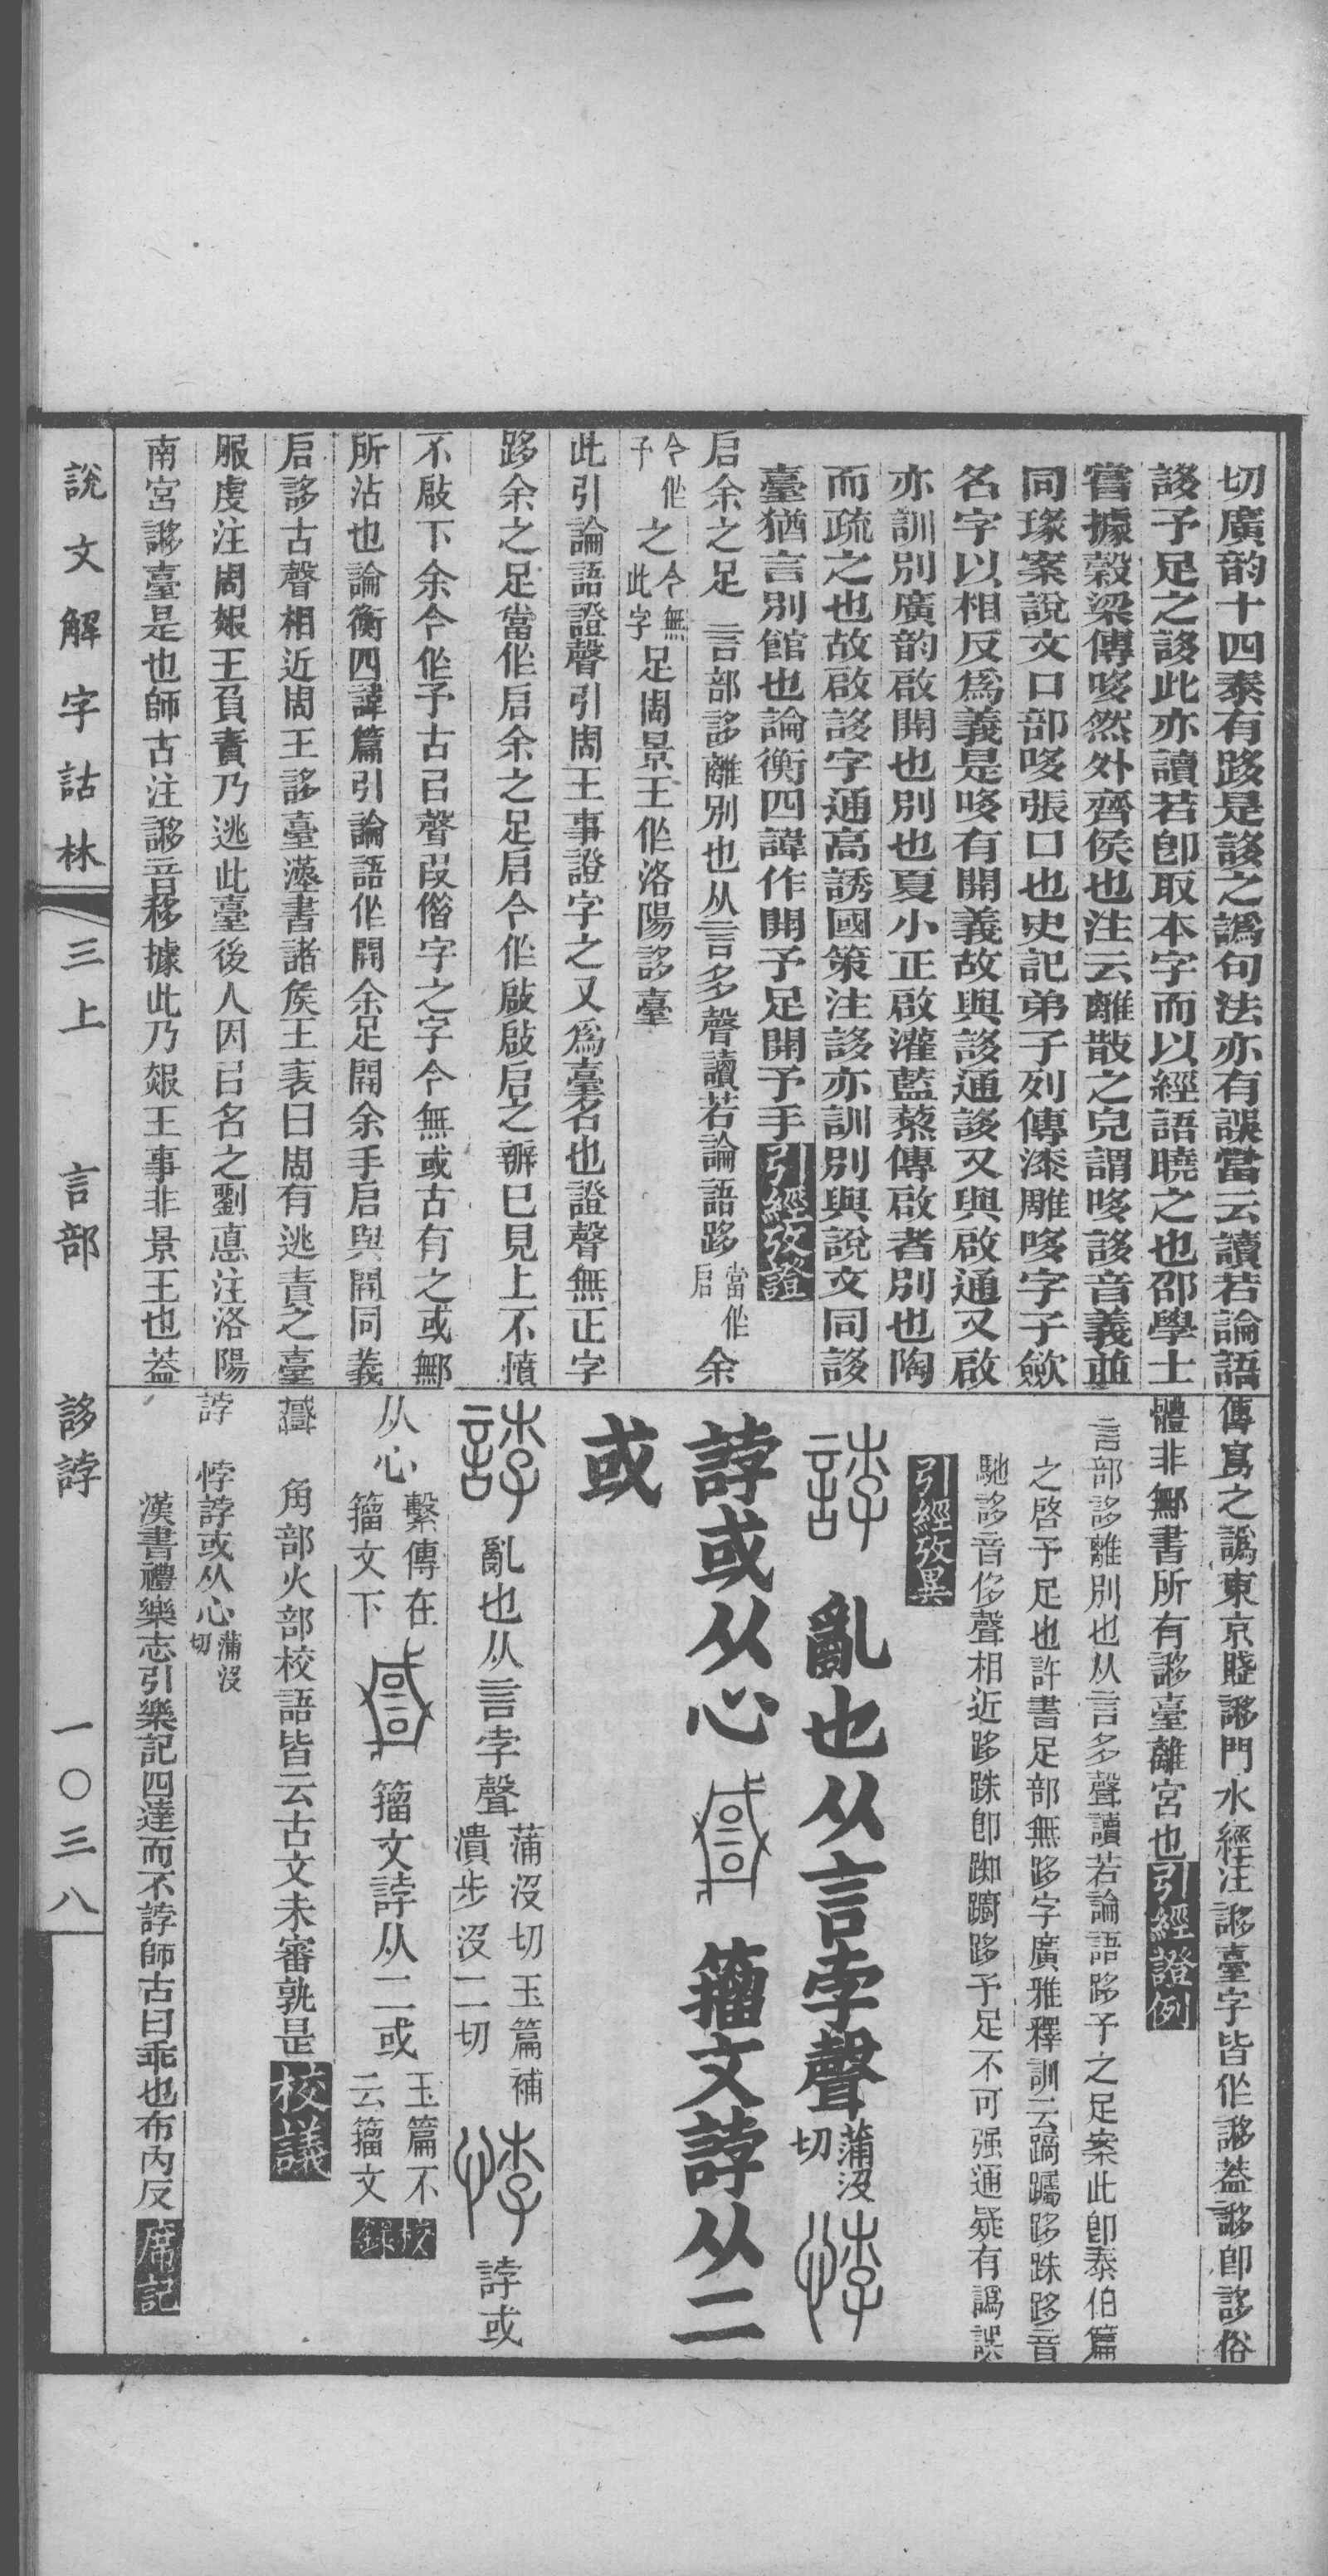 切廣韵十四泰有跢是誃之譌句法亦有誤當云讀若論語
誃予足之誃此亦讀若卽取本字而以經語曉之也邵學士
嘗據穀梁傳哆然外齊侯也注云離散之皃謂哆誃音義並
同瑑案說文口部哆張口也史記弟子列傳漆雕哆字子歛
名字以相反爲義是哆有開義故與誃通誃又與啟通又啟
亦訓別廣韵啟開也別也夏小正啟灌藍蓼傳啟者別也陶
而疏之也故啟誃字通高誘國策注誃亦訓別與說文同誃
臺猶言別館也論衡四諱作開予足開予手引經攷證
启余之足 言部誃離別也从言多聲讀若論語跢當作启余
今作予之今無此字足周景王作洛陽誃臺
此引論語證聲引周王事證字之又爲臺名也證聲無正字
跢余之足當作启余之足启今作啟啟启之辧巳見上不憤
不啟下余今作予古吕聲叚偺字之字今無或古有之或鄦
所沾也論衡四諱篇引論語作開余足開余手启與開同義
启誃古聲相近周王誃臺漢書諸矦王表曰周有逃責之臺
服虔注周赧王負責乃逃此臺後人因吕名之劉悳注洛陽
南宮謻臺是也師古注謻音移據此乃赧王事非景王也葢
傳寫之譌東京賤謻門水經注謻臺字皆作謻葢謻卽誃俗
體非鄦書所有謻臺離宮也引經證例
言部誃離別也从言多聲讀若論語跢予之足案此卽泰伯篇
之啓予足也許書足部無跢字廣雅釋訓云蹢躅跢跦跢音
馳誃音侈聲相近跢跦卽踟躕跢予足不可强通疑有譌誤
引經攷異
誖 亂也从言孛聲蒲沒切 悖
誖或从心 籒文誖从二
或
誖 亂也从言孛聲蒲沒切玉篇補潰步沒二切 悖 誖或
从心繫傳在籒文下 籒文誖从二或玉篇不云籒文校錄
角部火部校語皆云古文未審孰是校議
誖 悖誖或从心蒲沒切
漢書禮樂志引樂記四達而不誖師古曰乖也布內反席記
說文解字詁林 三上 言部 誃誖 一〇三八